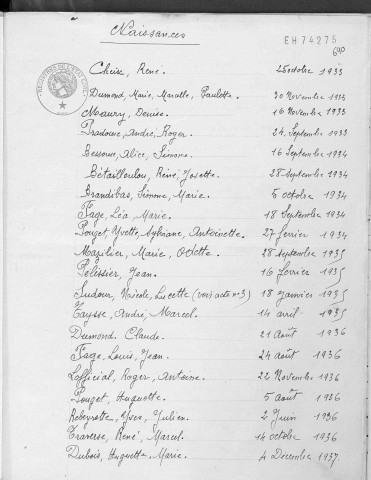 Naissances
EH74275
690
Cheize, René. 25 octobre 1933
Dumond, Marie, Marcelle, Paulette. 30 Novembre 1933
Maury, Denise. 16 Novembre 1933
Pradoux, André, Roger. 24 Septembre 1933
Bessoux, Alice, Simone. 16 Septembre 1934
Bétailloulou, René, Josette. 28 Septembre 1934
Brandibas, Simone, Marie. 5 octobre 1934
Fage, Léa, Marie. 18 Septembre 1934
Pouget, Yvette, Antoinette. 27 février 1934
Mazilier, Marie, Odette. 28 Septembre 1935
Pélissier, Jean. 16 février 1935
Sudour, Nicole, Lucette (voir acte n°3) 18 janvier 1935
Taysse, André, Marcel. 14 avril 1935
Dumond, Claude. 21 Août 1936
Fage, Louis, Jean. 24 août 1936
Lofficial, Roger, Antoine. 22 Novembre 1936
Pouget, Huguette. 5 août 1936
Rebeyrotte, Yves, Julien. 2 Juin 1936
Traverse, René, Marcel. 14 octobre 1936
Dubois, Huguette, Marie. 4 Décembre 1937.